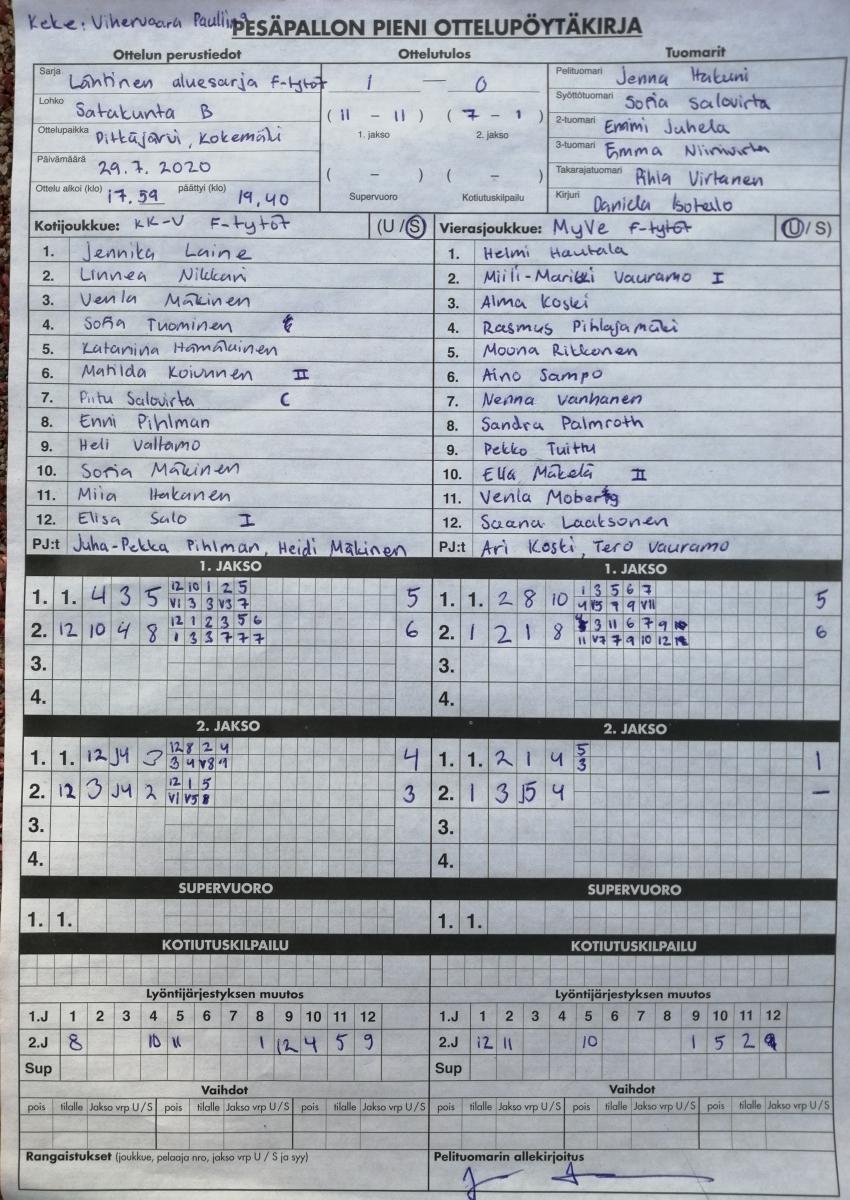 Keke: Vihervaara Pauliina
PESÄPALLON PIENI OTTELUPÖYTÄKIRJA
Ottelun perustiedot Ottelutulos Tuomarit
Sarja Läntinen aluesarja F-tytöt
1 — 0
Pelituomari Jenna Hakuni
Lohko Satakunta B
( 11 - 11 ) ( 7 - 1 )
Syöttötuomari Sofia Salovirta
Ottelupaikka Pitkäjärvi, Kokemäki
1. jakso 2. jakso
2-tuomari Emmi Juhela
Päivämäärä 29.7.2020
( - ) ( - )
3-tuomari Emma Niinivirta
Takarajatuomari Pihla Virtanen
Ottelu alkoi (klo) 17.59 päättyi (klo) 19,40
Supervuoro Kotiutuskilpailu
Kirjuri Daniela Isotalo
Kotijoukkue: KK-V F-tytöt (U / S) Vierasjoukkue: MyVe F-tytöt (U / S)
1. Jennika Laine 1. Helmi Hautala
2. Linnea Nikkari 2. Miili-Marikki Vauramo I
3. Venla Mäkinen 3. Alma Koski
4. Sofia Tuominen 4. Rasmus Pihlajamäki
5. Katariina Hämäläinen 5. Moona Ritkonen
6. Matilda Koivunen II 6. Aino Sampo
7. Piitu Salovirta C 7. Nenna Vanhanen
8. Enni Pihlman 8. Sandra Palmroth
9. Heli Valtamo 9. Pekko Tuittu
10. Sofia Mäkinen 10. Ella Mäkelä II
11. Miia Hakanen 11. Venla Moberg
12. Elisa Salo I 12. Saana Laaksonen
PJ:t Juha-Pekka Pihlman, Heidi Mäkinen PJ:t Ari Koski, Tero Vauramo
1. JAKSO 1. JAKSO
1. 1. 4 3 5 12 10 1 2 5 5 1. 1. 2 8 10 1 3 5 6 7 5
V1 3 3 V3 7 4 V5 7 9 V11
2. 12 10 4 8 12 1 2 3 5 6 6 2. 1 2 1 8 3 11 6 7 9 6
1 3 3 7 7 7 11 V7 7 9 10 12
3. 3.
4. 4.
2. JAKSO 2. JAKSO
1. 1. 12 J4 3 12 8 2 4 4 1. 1. 2 1 4 5 1
3 4 V8 9 3
2. 12 3 J4 2 12 1 5 3 2. 1 3 J5 4 —
V1 V5 8
3. 3.
4. 4.
SUPERVUORO SUPERVUORO
1. 1. 1. 1.
KOTIUTUSKILPAILU KOTIUTUSKILPAILU
Lyöntijärjestyksen muutos Lyöntijärjestyksen muutos
1.J 1 2 3 4 5 6 7 8 9 10 11 12 1.J 1 2 3 4 5 6 7 8 9 10 11 12
2.J 8 10 11 1 12 4 5 9 2.J 12 11 10 1 5 2
Sup Sup
Vaihdot Vaihdot
pois tilalle Jakso vrp U / S pois tilalle Jakso vrp U / S pois tilalle pois tilalle Jakso vrp U / S pois tilalle Jakso vrp U / S pois tilalle Jakso vrp U / S
Rangaistukset (joukkue, pelaaja nro, jakso vrp U / S ja syy) Pelituomarin allekirjoitus